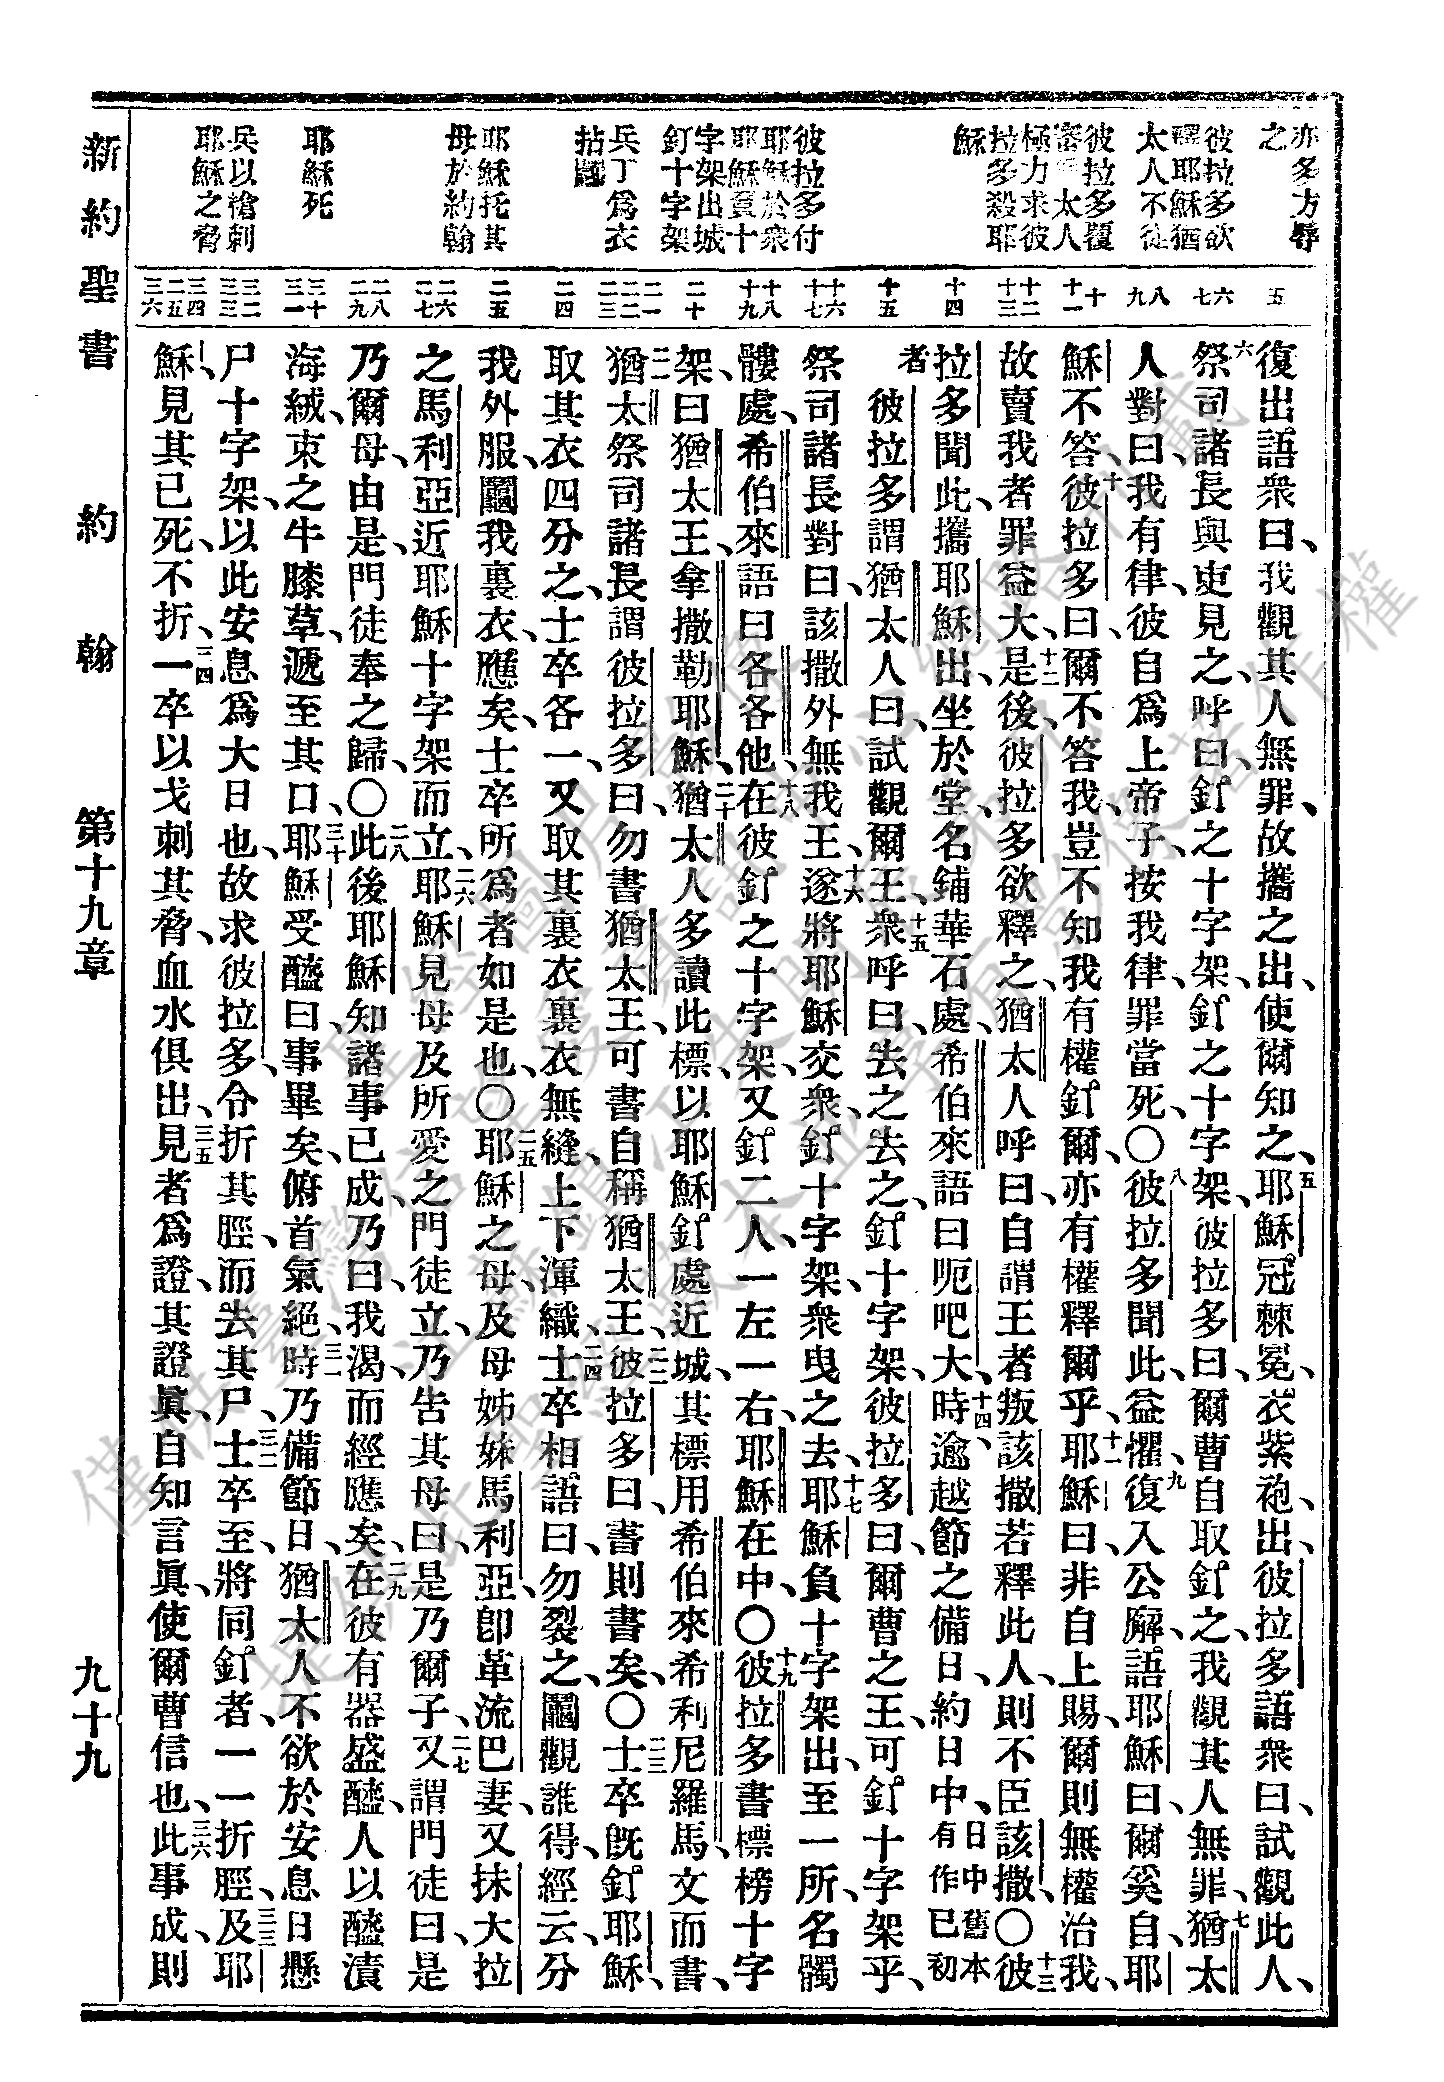 亦多方辱
之
彼拉多欲
釋耶穌猶
太人不從
彼拉多覆
審 太人
極力求彼
拉多殺耶
穌
彼拉多付
耶穌於衆
耶穌負十
字架出城
釘十字架
兵丁爲衣
拈鬮
耶穌托其
母於約翰
耶穌死
兵以槍刺
耶穌之脅
五
六
七
八
九
十
十一
十二
十三
十四
十五
十六
十七
十八
十九
二十
二一
二二
二三
二四
二五
二六
二七
二八
二九
三十
三一
三二
三三
三四
三五
三六
復出語衆曰、我觀其人無罪、故攜之出、使爾知之、五耶穌冠棘冕、衣紫袍、出、彼拉多語衆曰、試觀此人、
六祭司諸長與吏見之、呼曰、釘之十字架、釘之十字架、彼拉多曰、爾曹自取釘之、我觀其人無罪、七猶太
人對曰、我有律、彼自爲上帝子、按我律、罪當死、〇八彼拉多聞此、益懼、九復入公廨、語耶穌曰、爾奚自、耶
穌不答、十彼拉多曰、爾不答我、豈不知我有權釘爾、亦有權釋爾乎、十一耶穌曰、非自上賜、爾則無權治我、
故賣我者罪益大、十二是後、彼拉多欲釋之、猶太人呼曰、自謂王者叛該撒、若釋此人、則不臣該撒、〇十三彼
拉多聞此、攜耶穌出、坐於堂、名鋪華石處、希伯來語曰呃吧大、十四時逾越節之備日、約日中、日中舊本有作巳初
者彼拉多謂猶太人曰、試觀爾王、十五衆呼曰、去之去之、釘十字架、彼拉多曰、爾曹之王、可釘十字架乎、
祭司諸長對曰、該撒外無我王、十六遂將耶穌交衆、釘十字架、衆曳之去、十七耶穌負十字架出、至一所、名髑
髏處、希伯來語曰各各他、十八在彼釘之十字架、又釘二人、一左一右、耶穌在中、〇十九彼拉多書標榜十字
架、曰猶太王、拿撒勒耶穌、二十猶太人多讀此標、以耶穌釘處近城、其標用希伯來希利尼羅馬文而書、
二一猶太祭司諸長謂彼拉多曰、勿書猶太王、可書自稱猶太王、二二彼拉多曰、書則書矣、〇二三士卒旣釘耶穌、
取其衣四分之、士卒各一、又取其裏衣、裏衣無縫、上下渾織、二四士卒相語曰、勿裂之、鬮觀誰得、經云、分
我外服、鬮我裏衣、應矣、士卒所爲者如是也、〇二五耶穌之母、及母姊妹馬利亞、卽革流巴妻、又抹大拉
之馬利亞、近耶穌十字架而立、二六耶穌見母及所愛之門徒立、乃告其母曰、是乃爾子、二七又謂門徒曰、是
乃爾母、由是、門徒奉之歸、〇二八此後、耶穌知諸事已成、乃曰、我渴、而經應矣、二九在彼有器盛醯、人以醯漬
海絨、束之牛膝草、遞至其口、三十耶穌受醯曰、事畢矣、俯首氣絕、三一時乃備節日、猶太人不欲於安息日懸
尸十字架、以此安息爲大日也、故求彼拉多、令折其脛、而去其尸、三二士卒至、將同釘者、一一折脛、三三及耶
穌、見其已死、不折、三四一卒以戈刺其脅、血水俱出、三五見者爲證、其證眞、自知言眞、使爾曹信也、三六此事成、則
新約聖書 約翰 第十九章 九十九